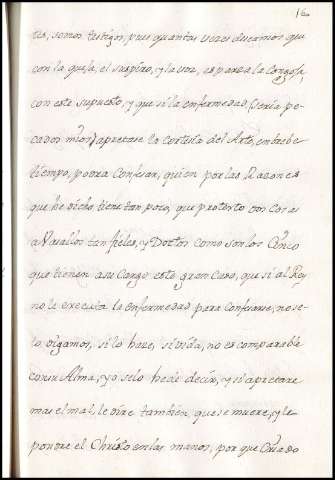 16
tes, somos testigos, pues quantas veces deseamos que
con la quexa, el suspiro, y la voz, esparza la Congoja,
con este supuesto, y que si la enfermedad (seria pe-
cados mios) apretase la cortesia del Arte, en tal
tiempo, podra Confesar, quien por las Razones
que he dicho tiene tan poco, que protesto con Cosas
a Vasallos tan fieles, y Doctos como son los Cinco
que tienen a su Cargo este gran Caso, que si al Rey
no le executa la enfermedad para Confesarse, no se
lo digamos, si lo hace, si vida, no es comparable
con su Alma, yo selo hede decir, y si apretare
mas el mal, le dire tambien, que se muere, y le
pondre el Christo en las manos, por que Criado